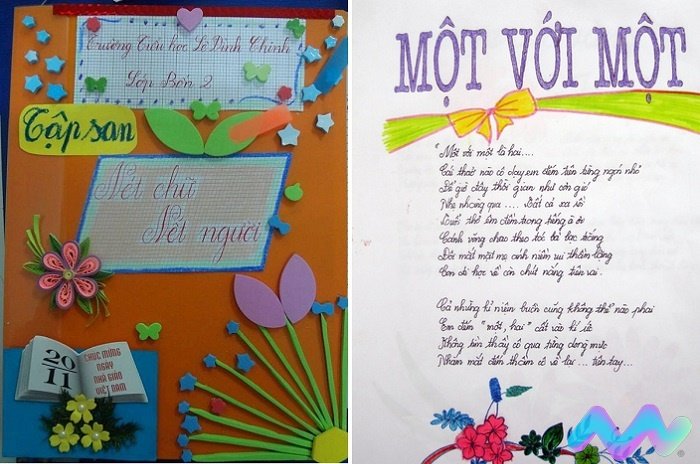 Trường Tiểu học Lê Đình Chinh
Lớp Bốn 2
Tập san
Nét chữ
Nét người
20
11
CHÚC MỪNG
NGÀY
NHÀ GIÁO
VIỆT NAM
MỘT VỚI MỘT
"Một với một là hai....
Cái thuở nào cô dạy em đếm trên từng ngón nhỏ
Để giờ đây thời gian như cơn gió
Nhẹ nhàng qua .... Tất cả xa rồi
Tuổi thơ êm đềm trong tiếng à ơi
Cánh võng chao theo tóc bà bạc trắng
Đôi mắt mẹ ánh niềm vui thầm lặng
Con đi học về còn chút nắng trên vai.
Cả những kỉ niệm buồn cũng không thể nào phai
Em đếm "một, hai" cất vào kí ức
Không tìm thấy cô qua từng dòng mực
Nhắm mắt đếm thầm cô về lại ... trên tay...